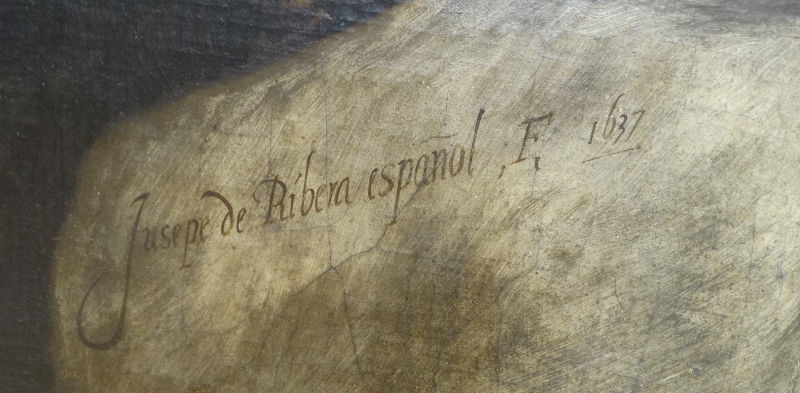 Jusepe de Ribera español, F. 1637